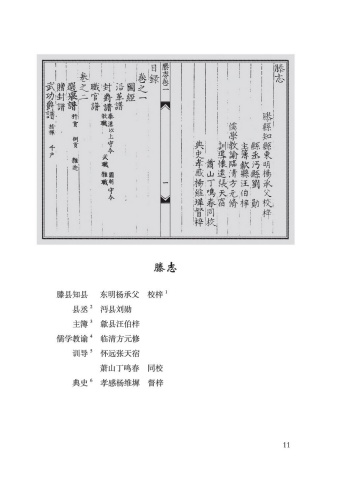 滕志
滕縣知縣東明楊承父校梓
縣丞沔縣劉勛
主簿歙縣汪伯梓
儒學教諭臨清方元脩
訓導懷遠張天宿
蕭山丁鳴春同校
典史孝感楊維墀督梓
滕志卷一
目録
卷之一
圖經
沿革譜
封爵譜
職官譜
卷之二
選舉譜
贈封譜
武功爵譜
一
滕志
滕县知县 东明杨承父 校梓1
县丞2 沔县刘勋
主簿3 歙县汪伯梓
儒学教谕4 临清方元修
训导5 怀远张天宿
萧山丁鸣春 同校
典史6 孝感杨维墀 督梓
11